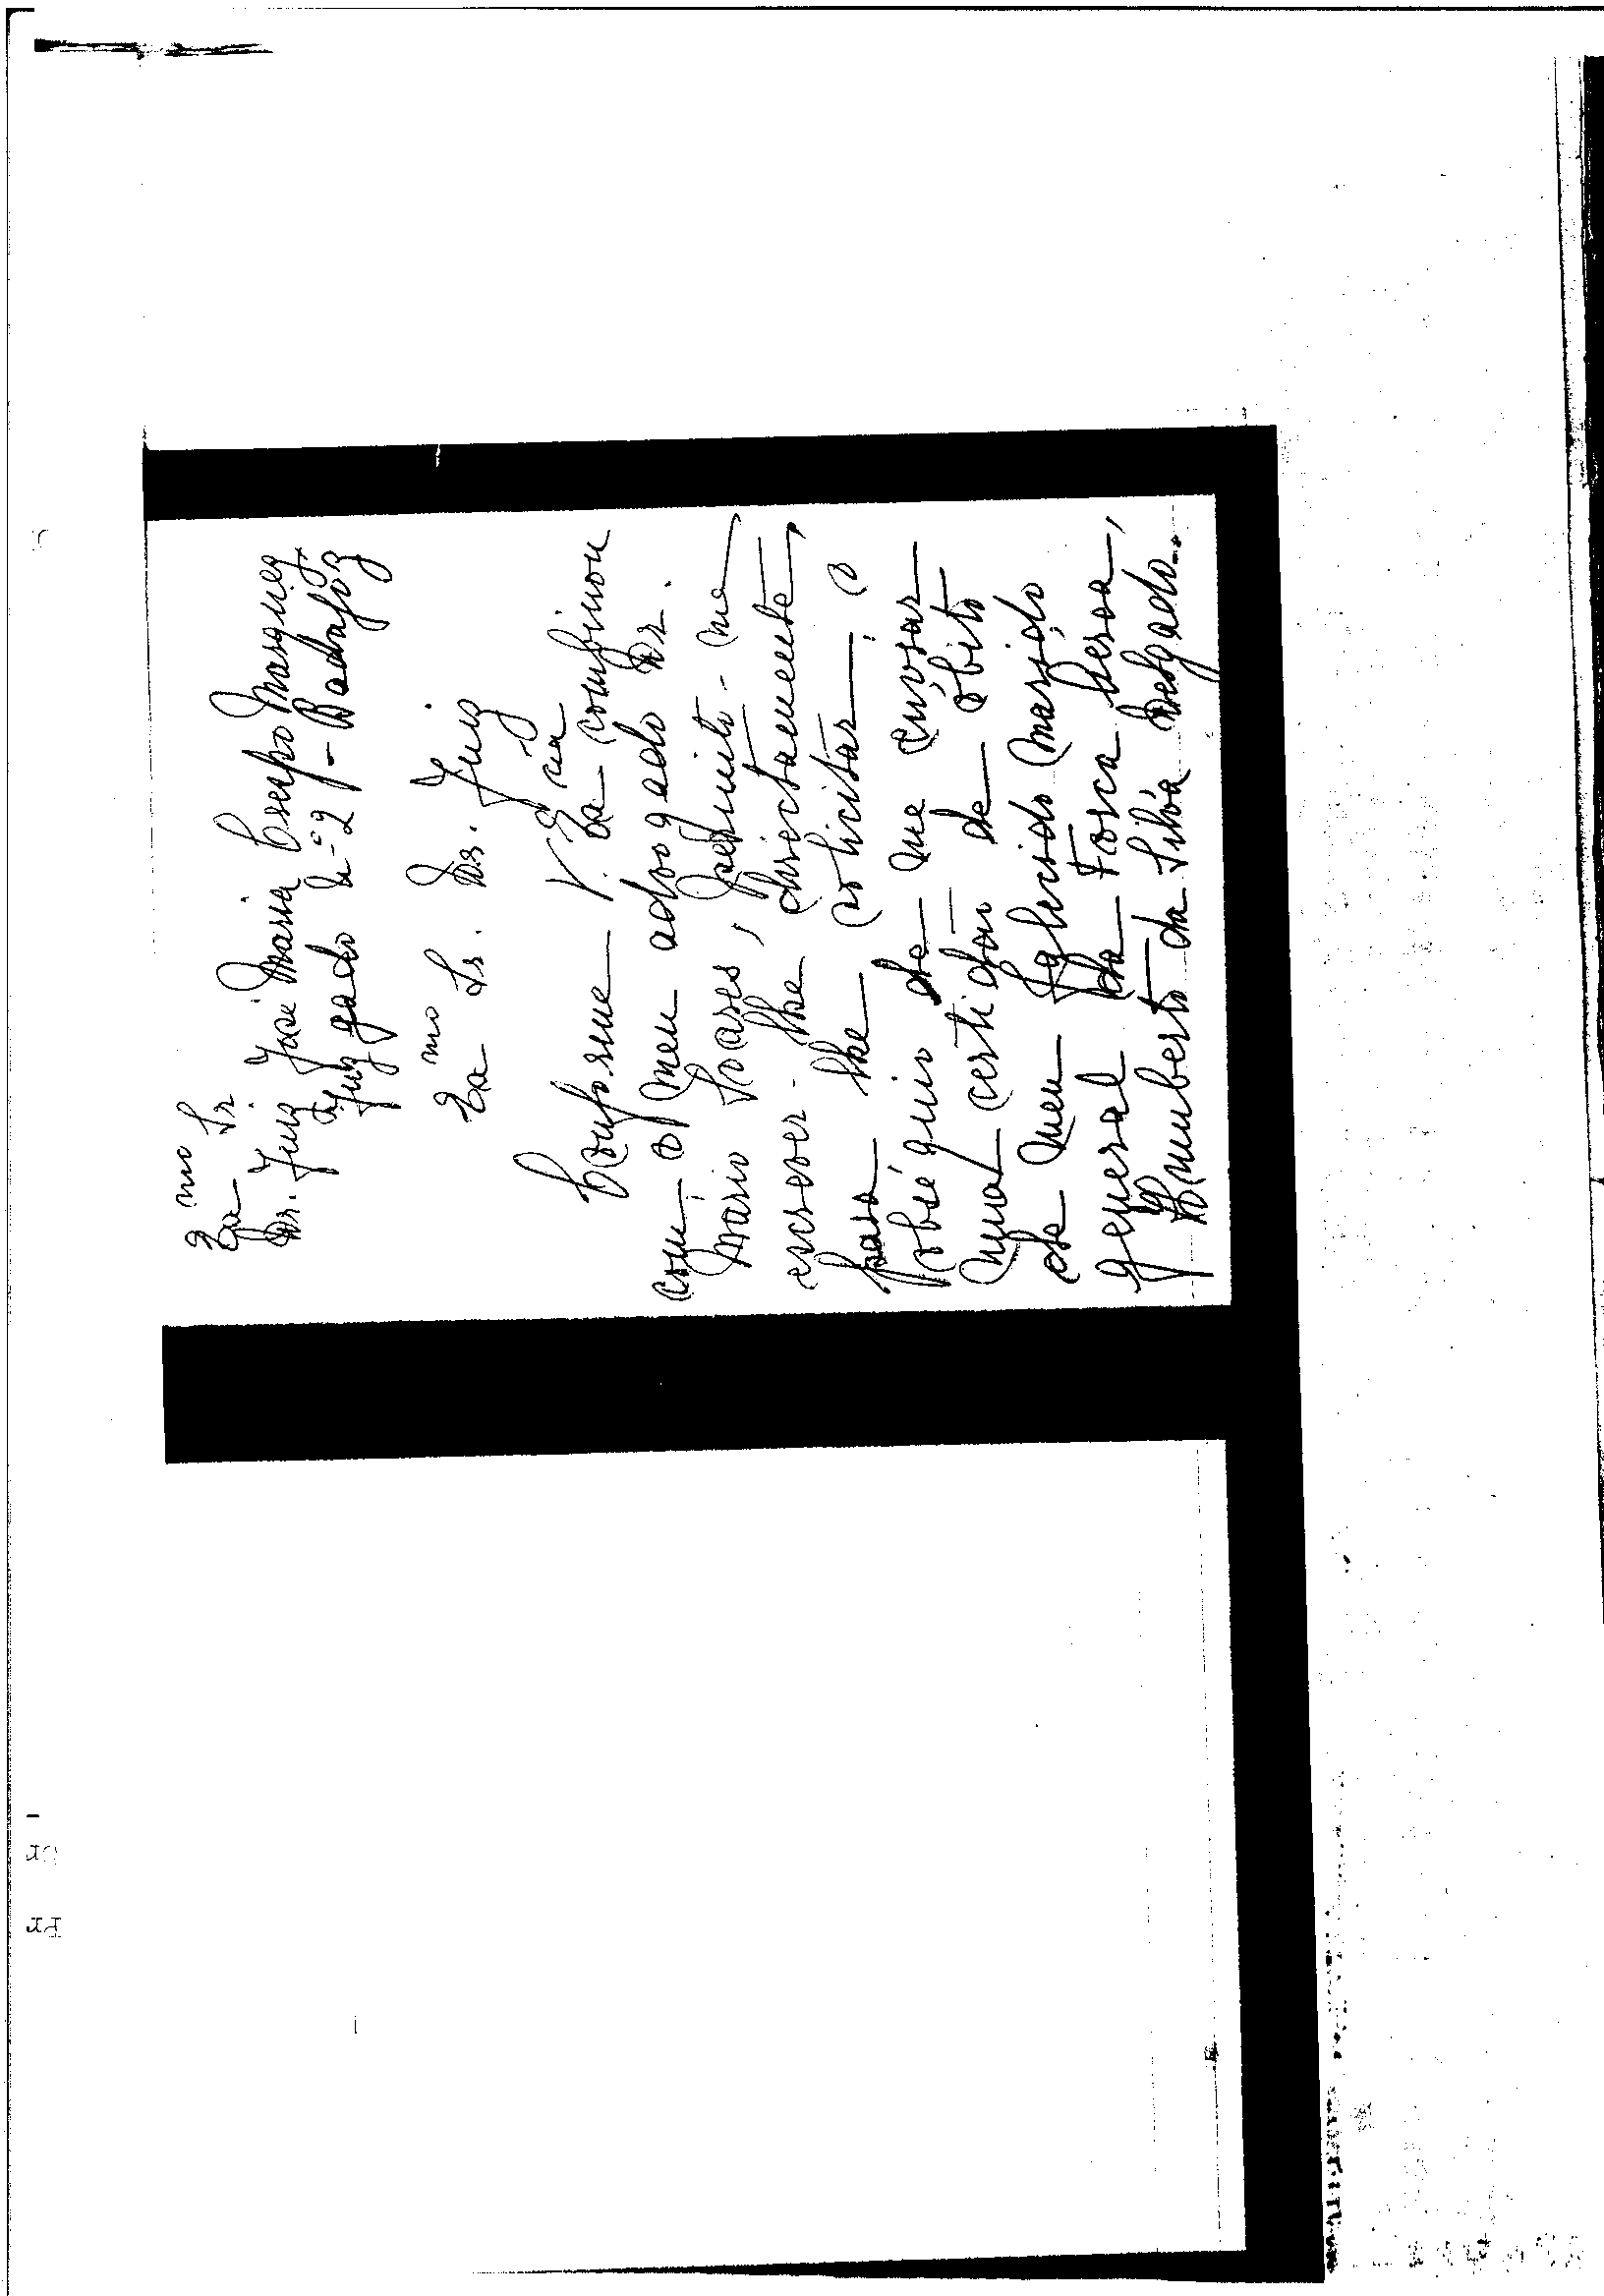 Exmo Sr.
Dr. Juiz José Maria Crespo Marquez,
Juzgado n-º 2 - Badajoz
Exmo Sr. Dr. Juiz
Conforme V. Excia combinou
com o meu advogado Dr.
Mario Soares, permito-me
escrever-lhe directamente,
para lhe solicitar o
obséquio de me enviar
uma certidão de óbito
de meu falecido marido
general da Força Aérea,
Humberto da Silva Delgado.